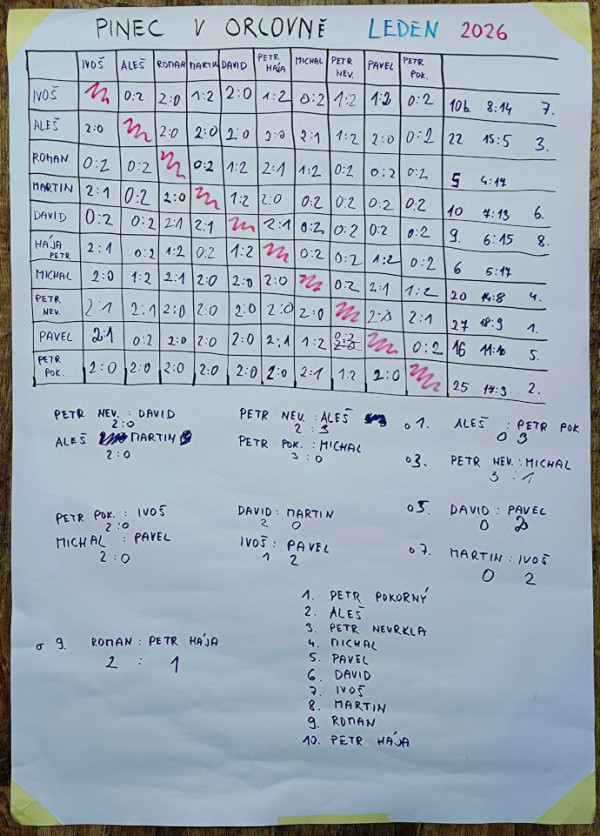 PINEC V ORLOVNĚ LEDEN 2026
IVOŠ ALEŠ ROMAN MARTIN DAVID PETR HÁJA MICHAL PETR NEV. PAVEL PETR POK.
IVOŠ 0:2 2:0 1:2 2:0 1:2 0:2 1:2 1:2 0:2 10b. 8:14 7.
ALEŠ 2:0 2:0 2:0 2:0 2:0 2:1 1:2 2:0 0:2 22 15:5 3.
ROMAN 0:2 0:2 0:2 1:2 2:1 1:2 0:2 0:2 0:2 5 4:17
MARTIN 2:1 0:2 2:0 1:2 2:0 0:2 0:2 0:2 0:2 10 7:13 6.
DAVID 0:2 0:2 2:1 2:1 2:1 0:2 0:2 0:2 0:2 9. 6:15 8.
HÁJA PETR 2:1 0:2 1:2 0:2 1:2 0:2 0:2 1:2 0:2 6 5:17
MICHAL 2:0 1:2 2:1 2:0 2:0 2:0 0:2 2:1 1:2 20 14:8 4.
PETR NEV. 2:1 2:1 2:0 2:0 2:0 2:0 2:0 2:0 2:1 27 18:3 1.
PAVEL 2:1 0:2 2:0 2:0 2:0 2:1 1:2 0:2 16 11:10 5.
PETR POK. 2:0 2:0 2:0 2:0 2:0 2:0 2:1 1:2 2:0 25 17:3 2.
PETR NEV. : DAVID PETR NEV. : ALEŠ o 1. ALEŠ : PETR POK.
2:0 2:3 0 3
ALEŠ MARTIN PETR POK. : MICHAL o 3. PETR NEV. : MICHAL
2:0 3:0 3:1
PETR POK. : IVOŠ DAVID : MARTIN o 5. DAVID : PAVEL
2:0 2 0 0 2
MICHAL : PAVEL IVOŠ : PAVEL o 7. MARTIN : IVOŠ
2:0 1 2 0 2
o 9. ROMAN : PETR HÁJA
2 : 1
1. PETR POKORNÝ
2. ALEŠ
3. PETR NEVRKLA
4. MICHAL
5. PAVEL
6. DAVID
7. IVOŠ
8. MARTIN
9. ROMAN
10. PETR HÁJA